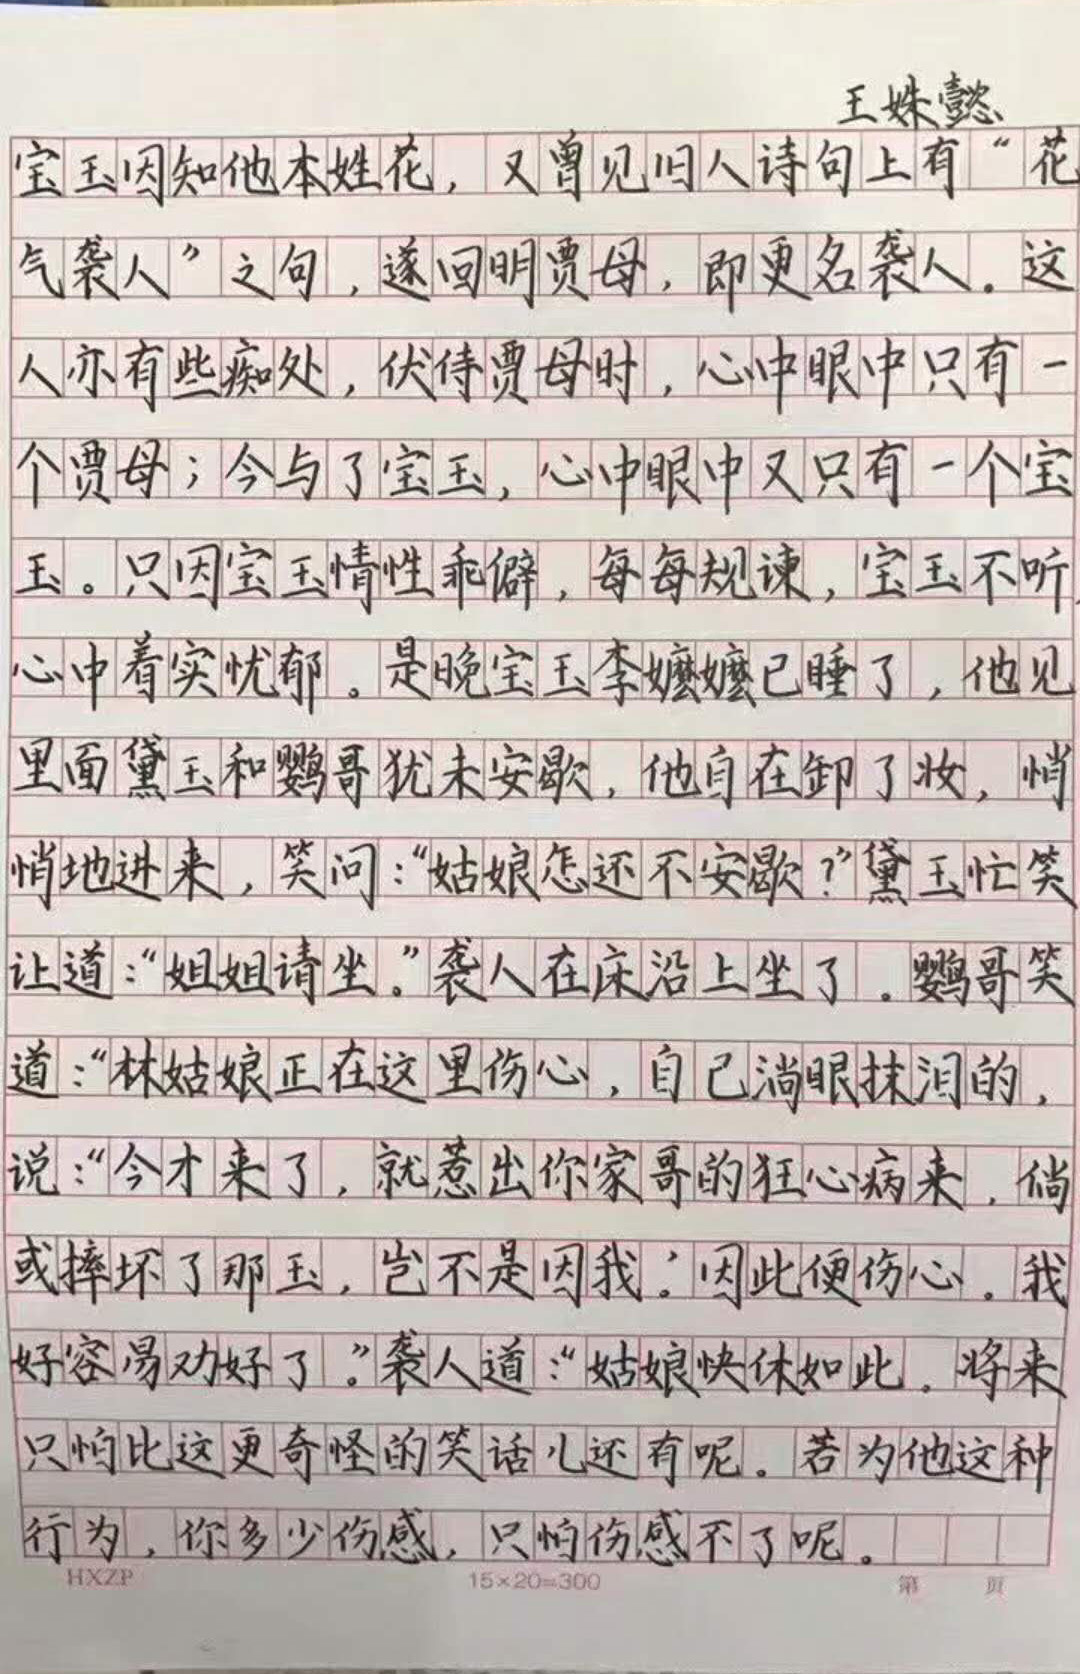 王姝懿
宝玉因知他本姓花，又曾见旧人诗句上有“花
气袭人”之句，遂回明贾母，即更名袭人。这
人亦有些痴处，伏侍贾母时，心中眼中只有一
个贾母；今与了宝玉，心中眼中又只有一个宝
玉。只因宝玉情性乖僻，每每规谏，宝玉不听，
心中着实忧郁。是晚宝玉李嬷嬷已睡了，他见
里面黛玉和鹦哥犹未安歇，他自在卸了妆，悄
悄地进来，笑问：“姑娘怎还不安歇？”黛玉忙笑
让道：“姐姐请坐。”袭人在床沿上坐了。鹦哥笑
道：“林姑娘正在这里伤心，自己淌眼抹泪的，
说：“今才来了，就惹出你家哥的狂心病来，倘
或摔坏了那玉，岂不是因我.’因此便伤心。我
好容易劝好了。”袭人道：“姑娘快休如此。将来
只怕比这更奇怪的笑话儿还有呢。若为他这种
行为，你多少伤感，只怕伤感不了呢。
HXZP 15×20=300 第 页